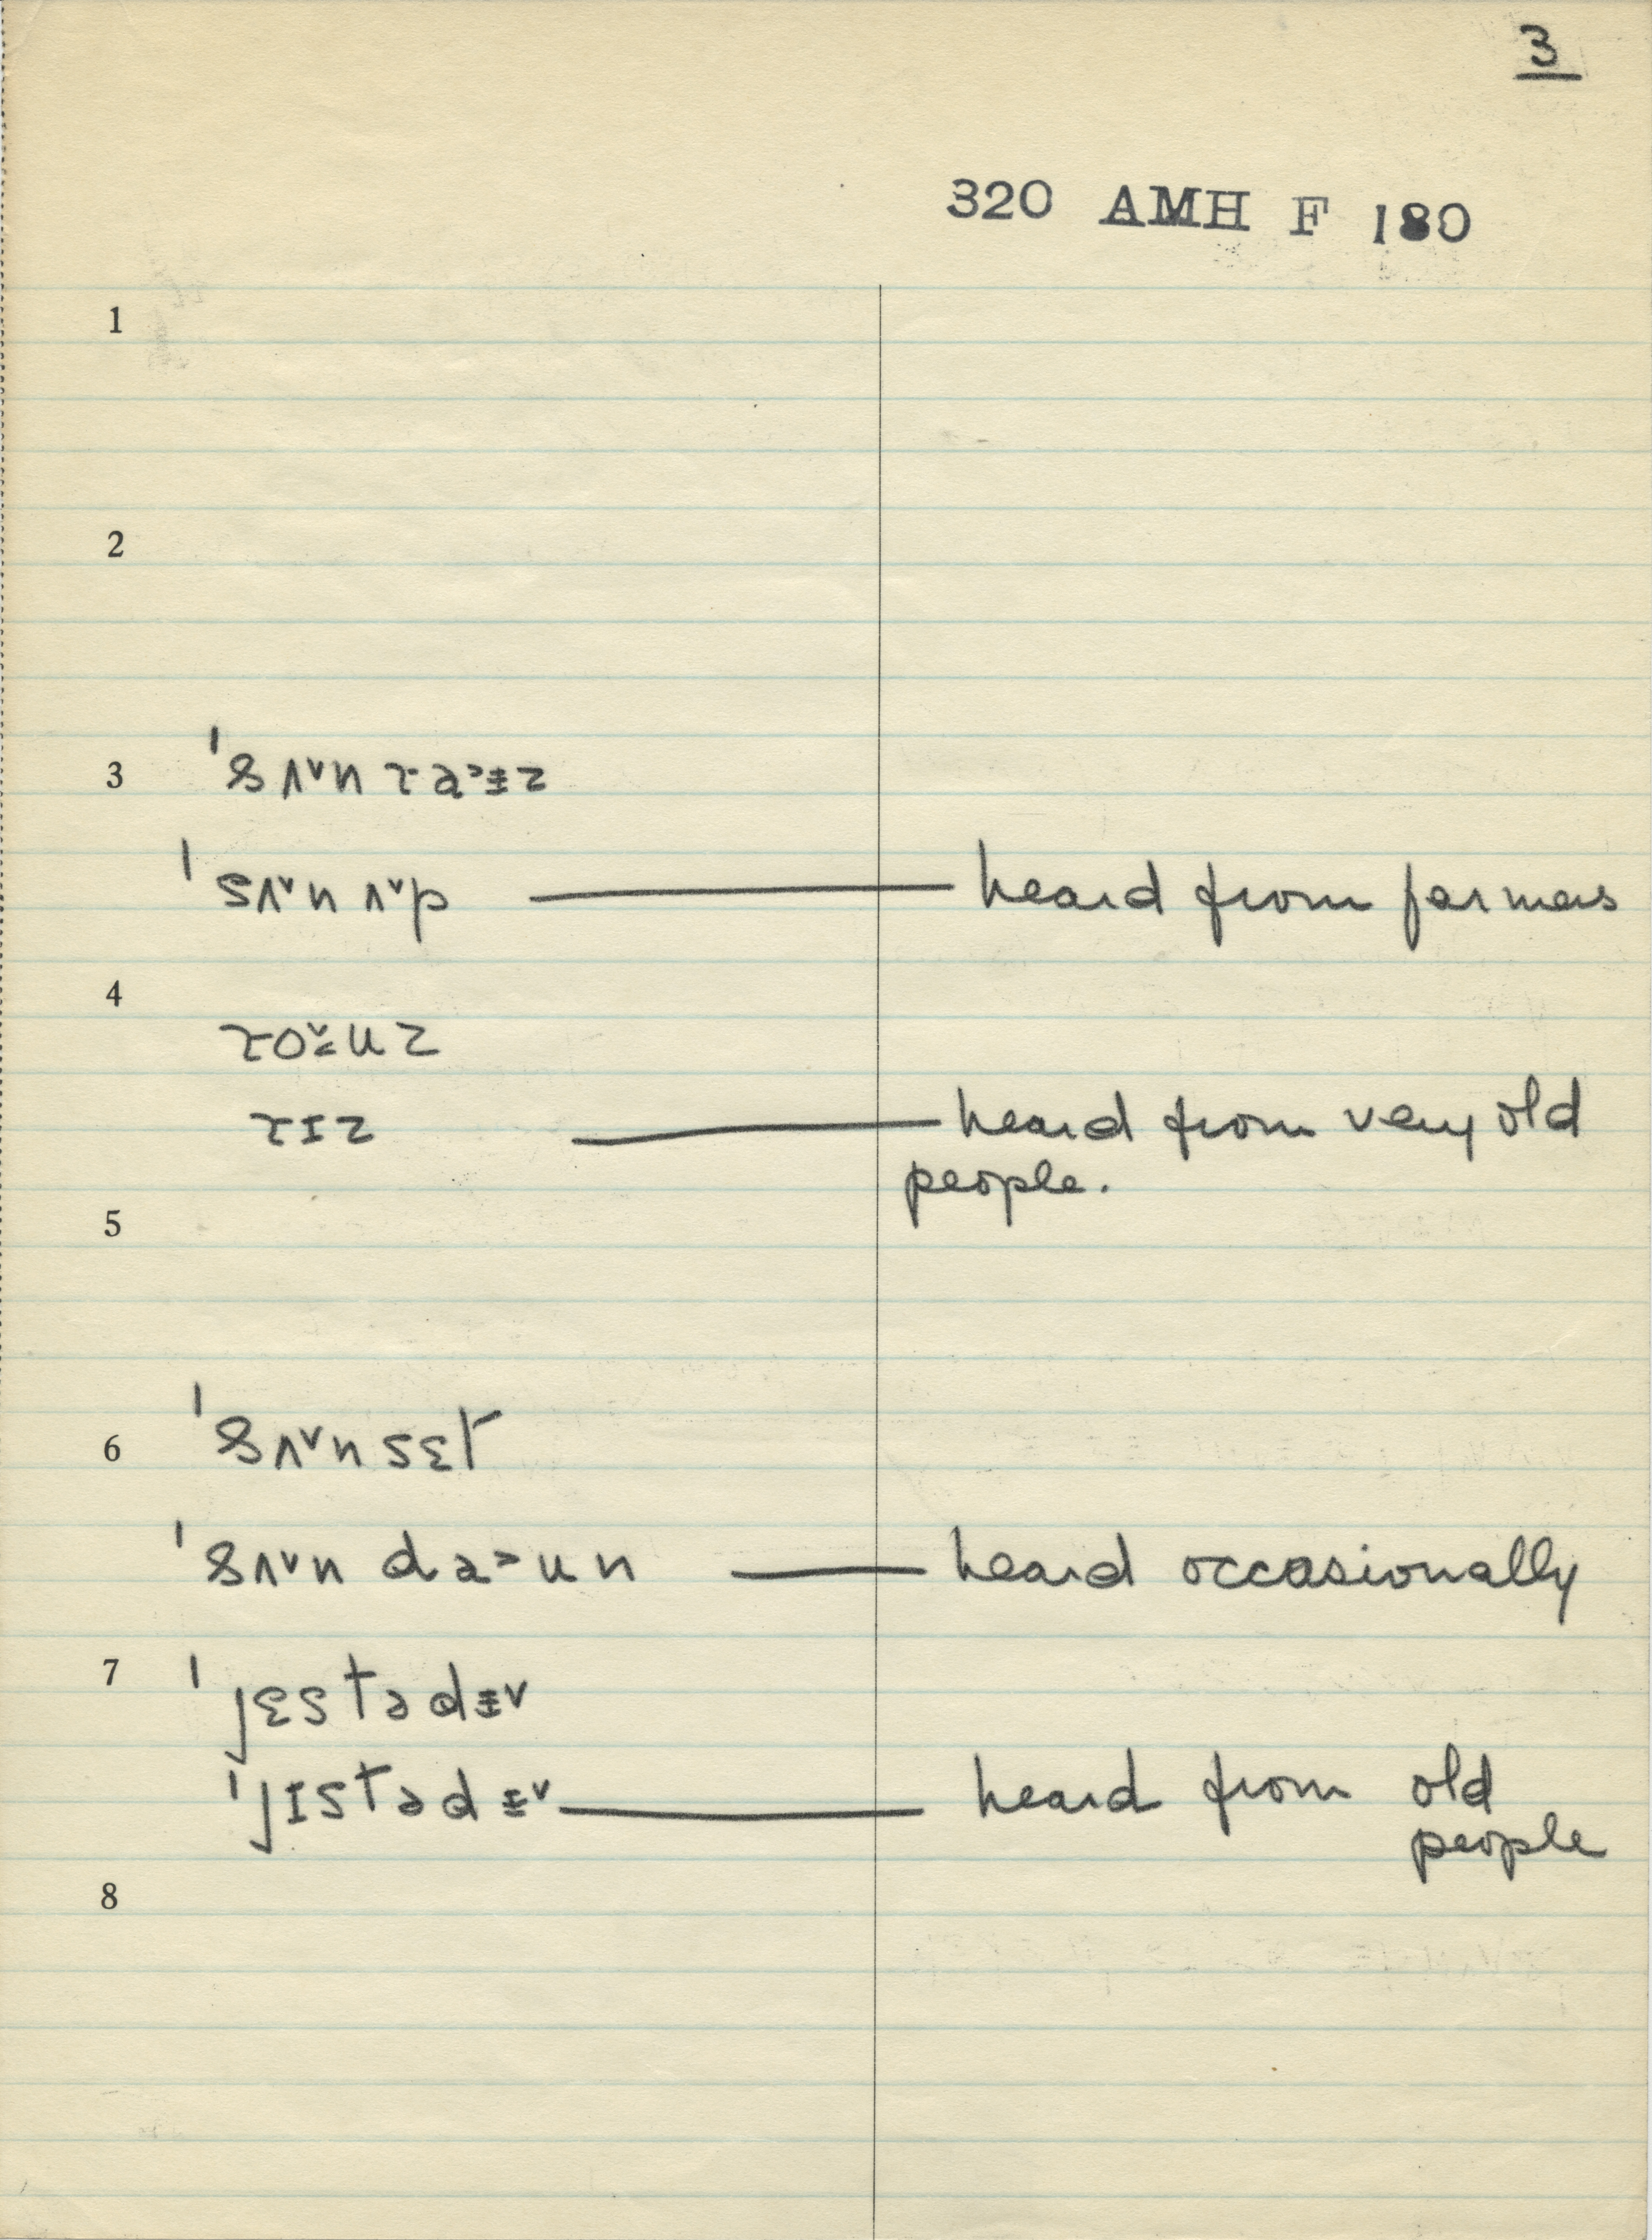 3
320 AMH F 180
1
2
3
ˈsʌ˅n ɽa˃ɨz
ˈsʌ˅n ʌ˅p — heard from farmers
4
ɽo˅uz
ɽɪz — heard from very old
people.
5
6 ˈsʌ˅nsɛt
ˈsʌ˅n da˃un — heard occasionally
7 ˈjɛstədɨ˅
ˈjɪstədɨ˅ — heard from old
people
8